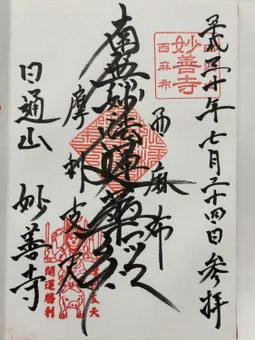 平成三十年七月二十四日参拝
西麻布
妙善寺
西麻布
南無妙法蓮華経
摩利支天
日通山 妙善寺
開運勝利